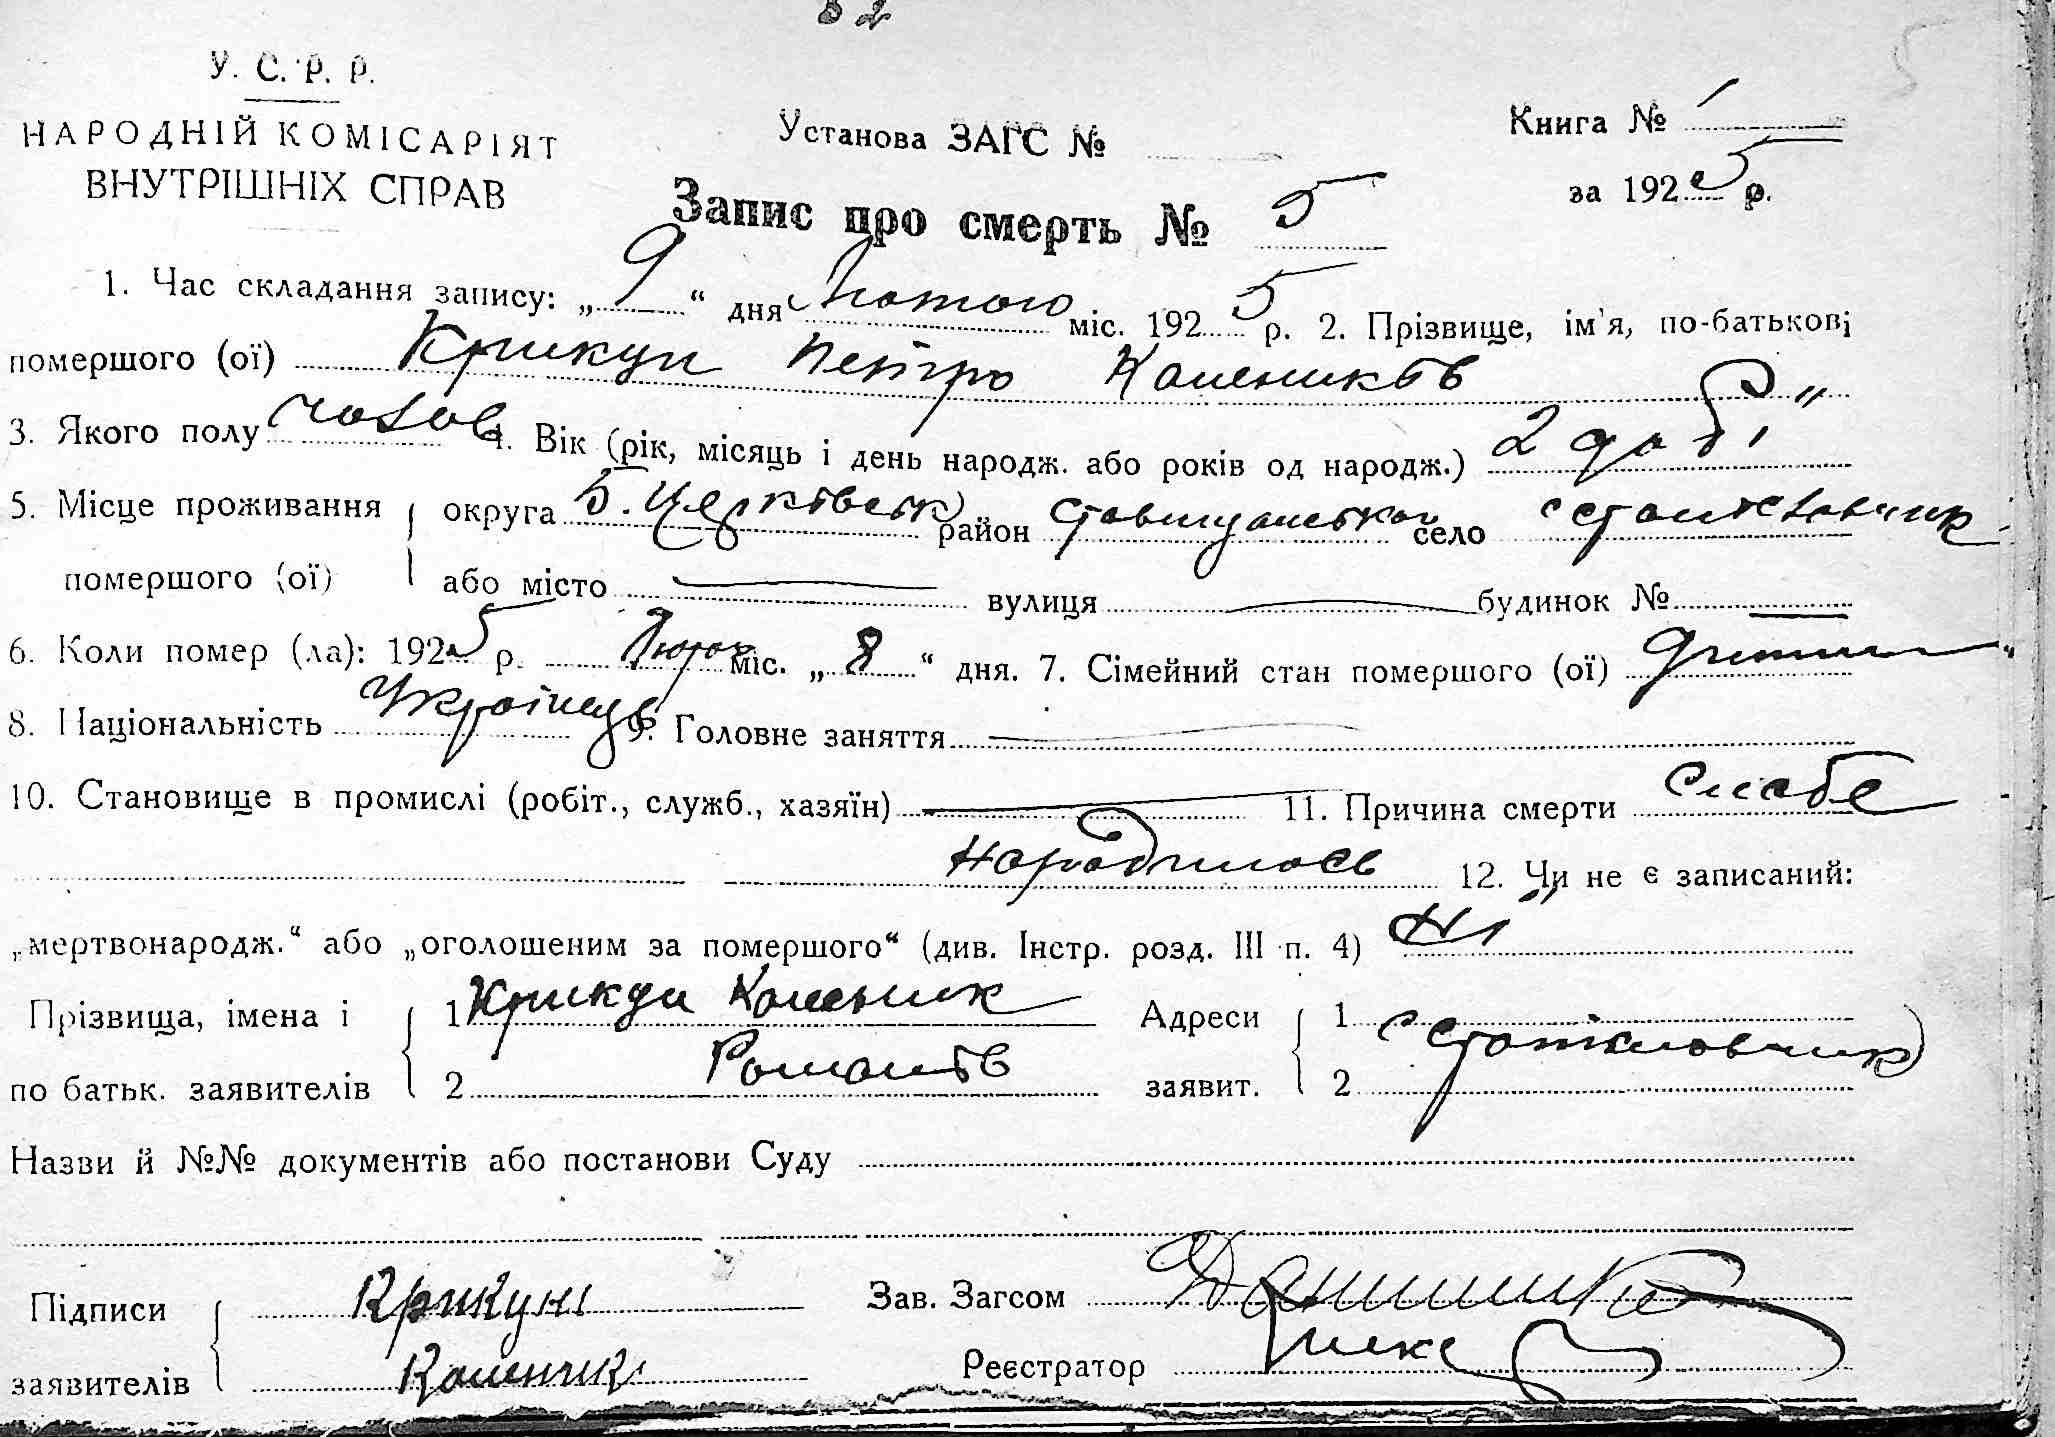 У. С. Р. Р.
НАРОДНІЙ КОМІСАРІЯТ
ВНУТРІШНІХ СПРАВ
Установа ЗАГС №
Книга № 1
за 1925 р.
Запис про смерть № 5
1. Час складання запису: „ 9 “ дня Лютого міс. 1925 р. 2. Прізвище, ім'я, по-батькові
помершого (ої) Крикун Петро Калеників
3. Якого полу чолов 4. Вік (рік, місяць і день народж. або років од народж.) 2 доби
5. Місце проживання округа Б. Церківськ район Ставищанський село Станіславчик
помершого (ої) або місто вулиця будинок №
6. Коли помер (ла): 1925 р. Лютого міс. „ 8 “ дня. 7. Сімейний стан помершого (ої)
8. Національність Українець 9. Головне заняття
10. Становище в промислі (робіт., служб., хазяїн) 11. Причина смерти слабе
народилось 12. Чи не є записаний:
„мертвонародж.“ або „оголошеним за помершого“ (див. Інстр. розд. III п. 4) Ні
Прізвища, імена і 1 Крикун Каленик Адреси 1 Станіславчик
по батьк. заявителів 2 Романів заявит. 2
Назви й №№ документів або постанови Суду
Підписи Крикун Зав. Загсом
заявителів Каленик Реєстратор